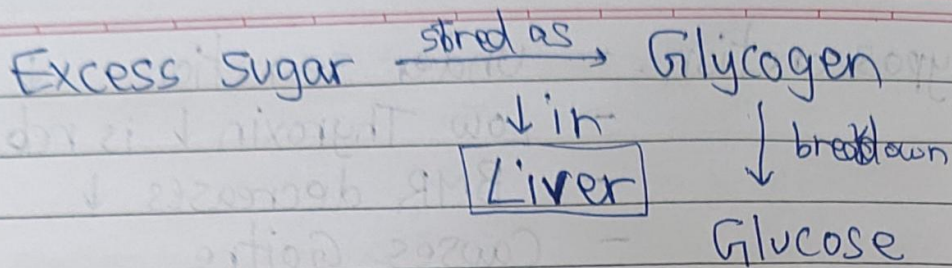 Excess sugar stored as → Glycogen
↓ in ↓ breakdown
Liver
Glucose